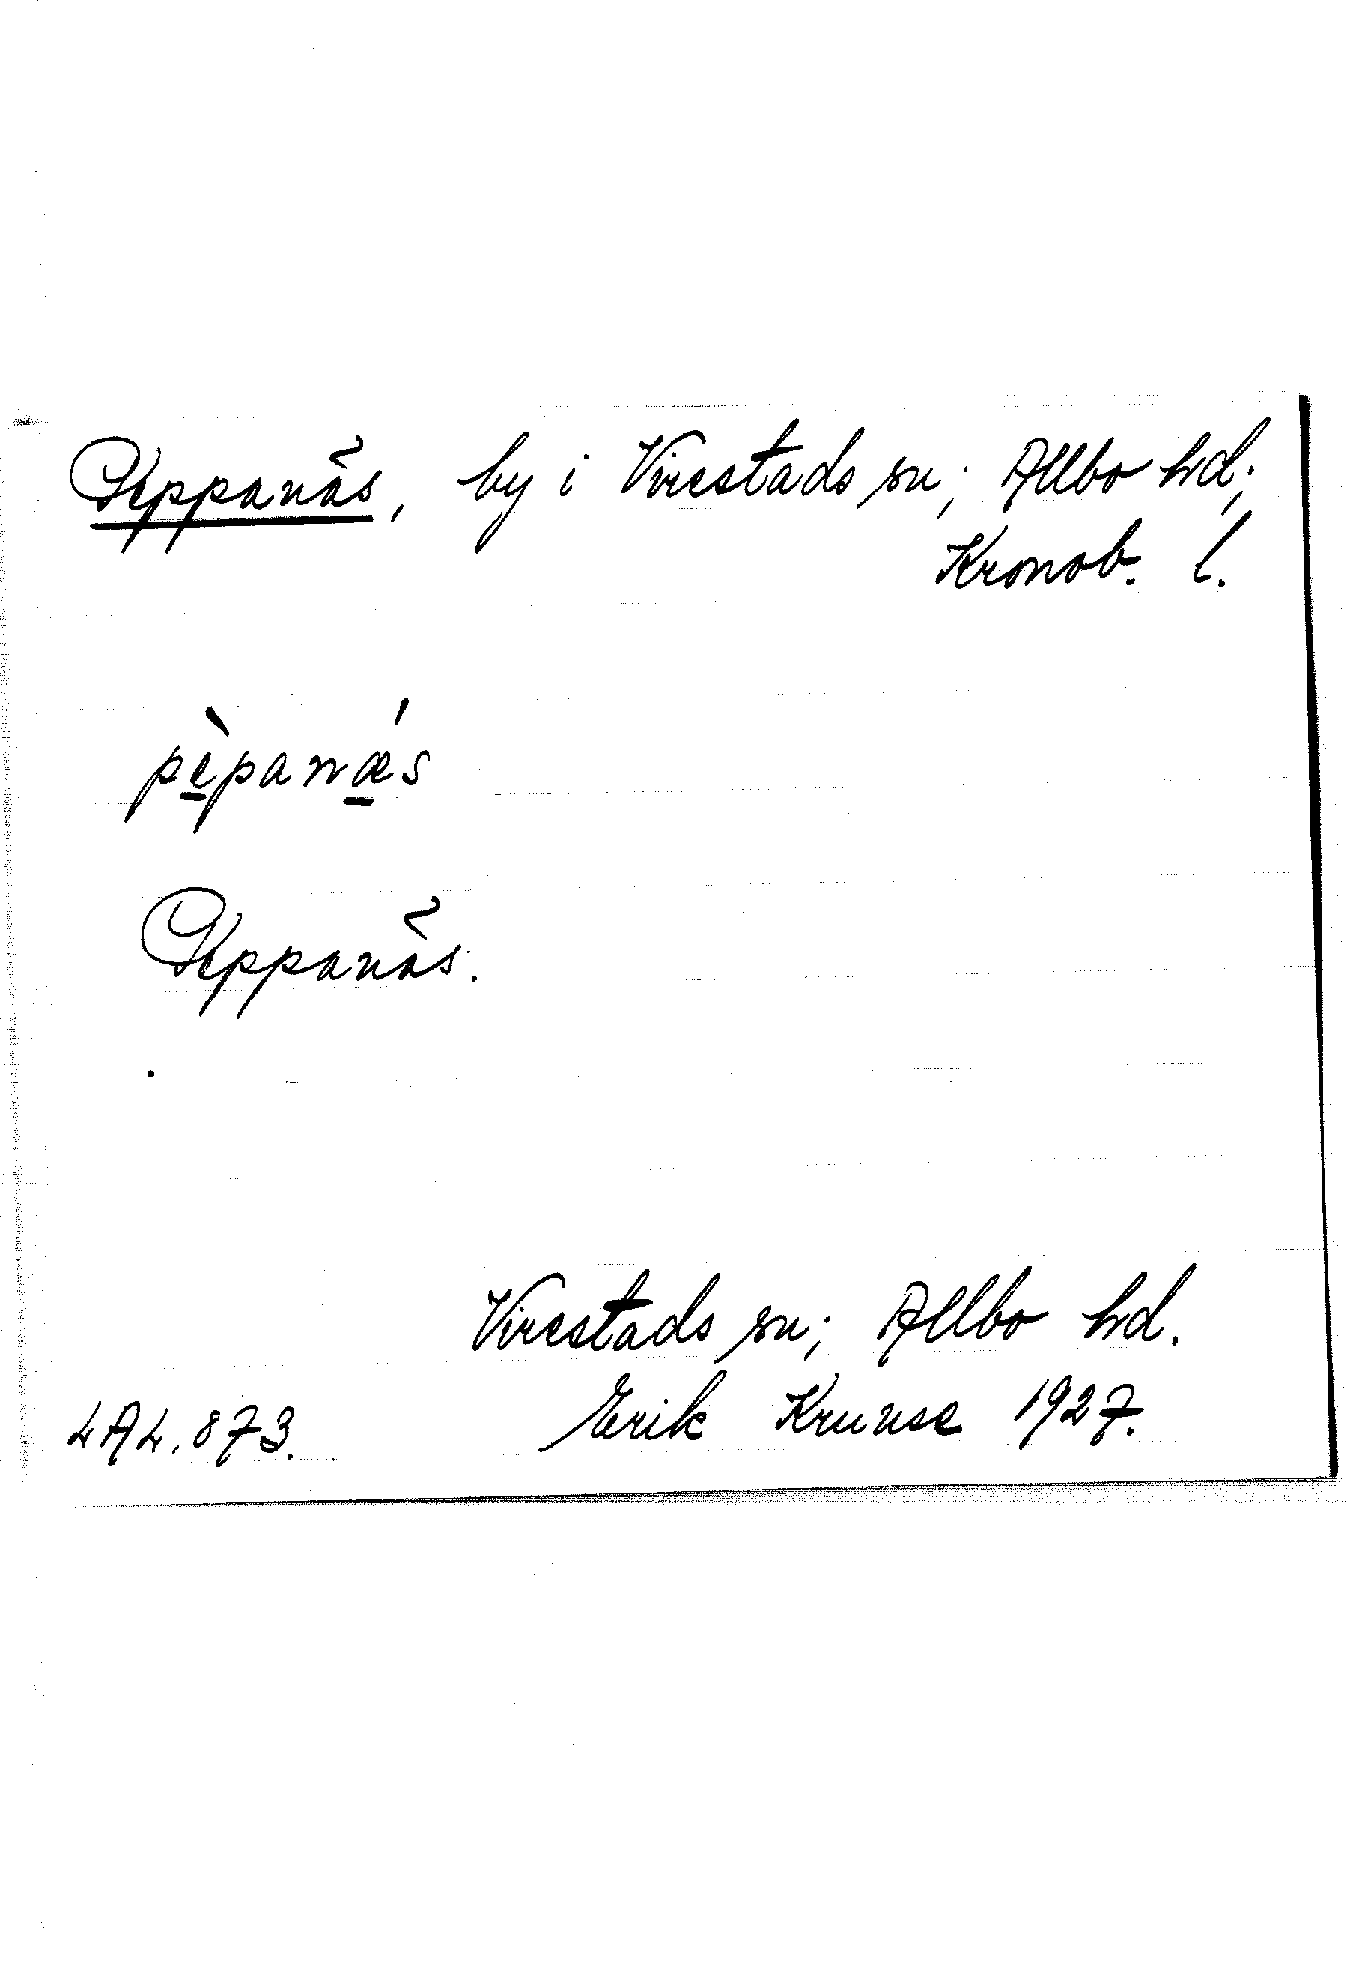 Peppanäs, by i Virestads sn; Allbo hd;
Kronob. l.
pèpanǽs
Peppanäs.
Virestads sn; Allbo hd.
LAL. 873. Erik Kruuse 1927.